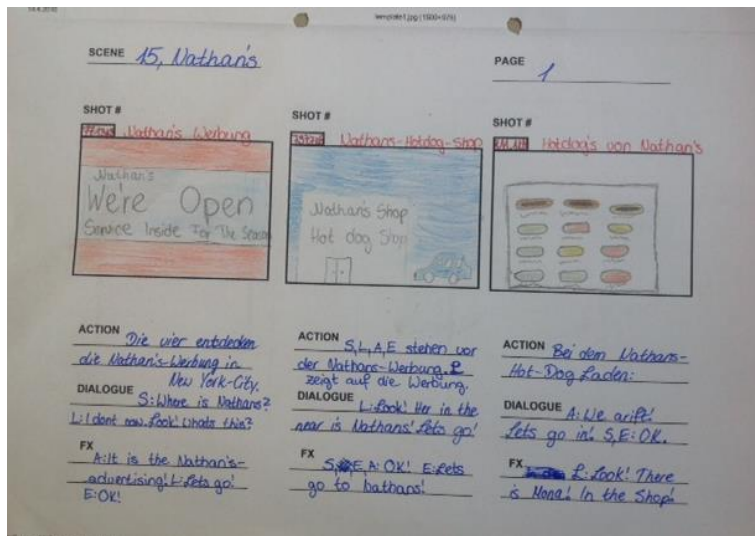 14.4.2010
template1.jpg (1500×979)
SCENE 15, Nathan's
PAGE 1
SHOT #
Nathan's Werbung
Nathan's
We're Open
Service Inside For The Season
ACTION Die vier entdecken
die Nathan's-Werbung in
New York-City.
DIALOGUE S: Where is Nathans?
L: I dont now. Look! Whats this?
FX
A: It is the Nathan's-
advertising! L: Lets go!
E: OK!
SHOT #
Nathans-Hotdog-Shop
Nathan's Shop
Hot dog Stop
ACTION S, L, A, E stehen vor
der Nathans-Werbung. L
zeigt auf die Werbung.
DIALOGUE L: Look! Her in the
near is Nathans! Lets go!
FX
S, E, A: OK! E: Lets
go to bathans!
SHOT #
Hotdog's von Nathan's
ACTION Bei dem Nathans-
Hot-Dog Laden:
DIALOGUE A: We arift!
Lets go in! S, E: OK.
FX L: Look! There
is Mona! In the Shop!